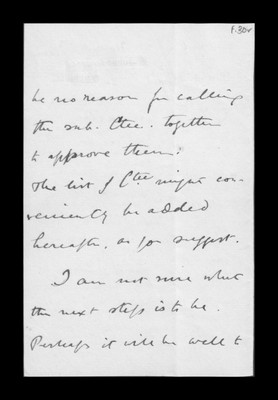 f.30v
be no reason for calling
the sub-Ctee. together
to approve them.
The list of Ctee might con-
veniently be added
hereafter, as you suggest.
I am not sure what
the next step is to be.
Perhaps it will be well to